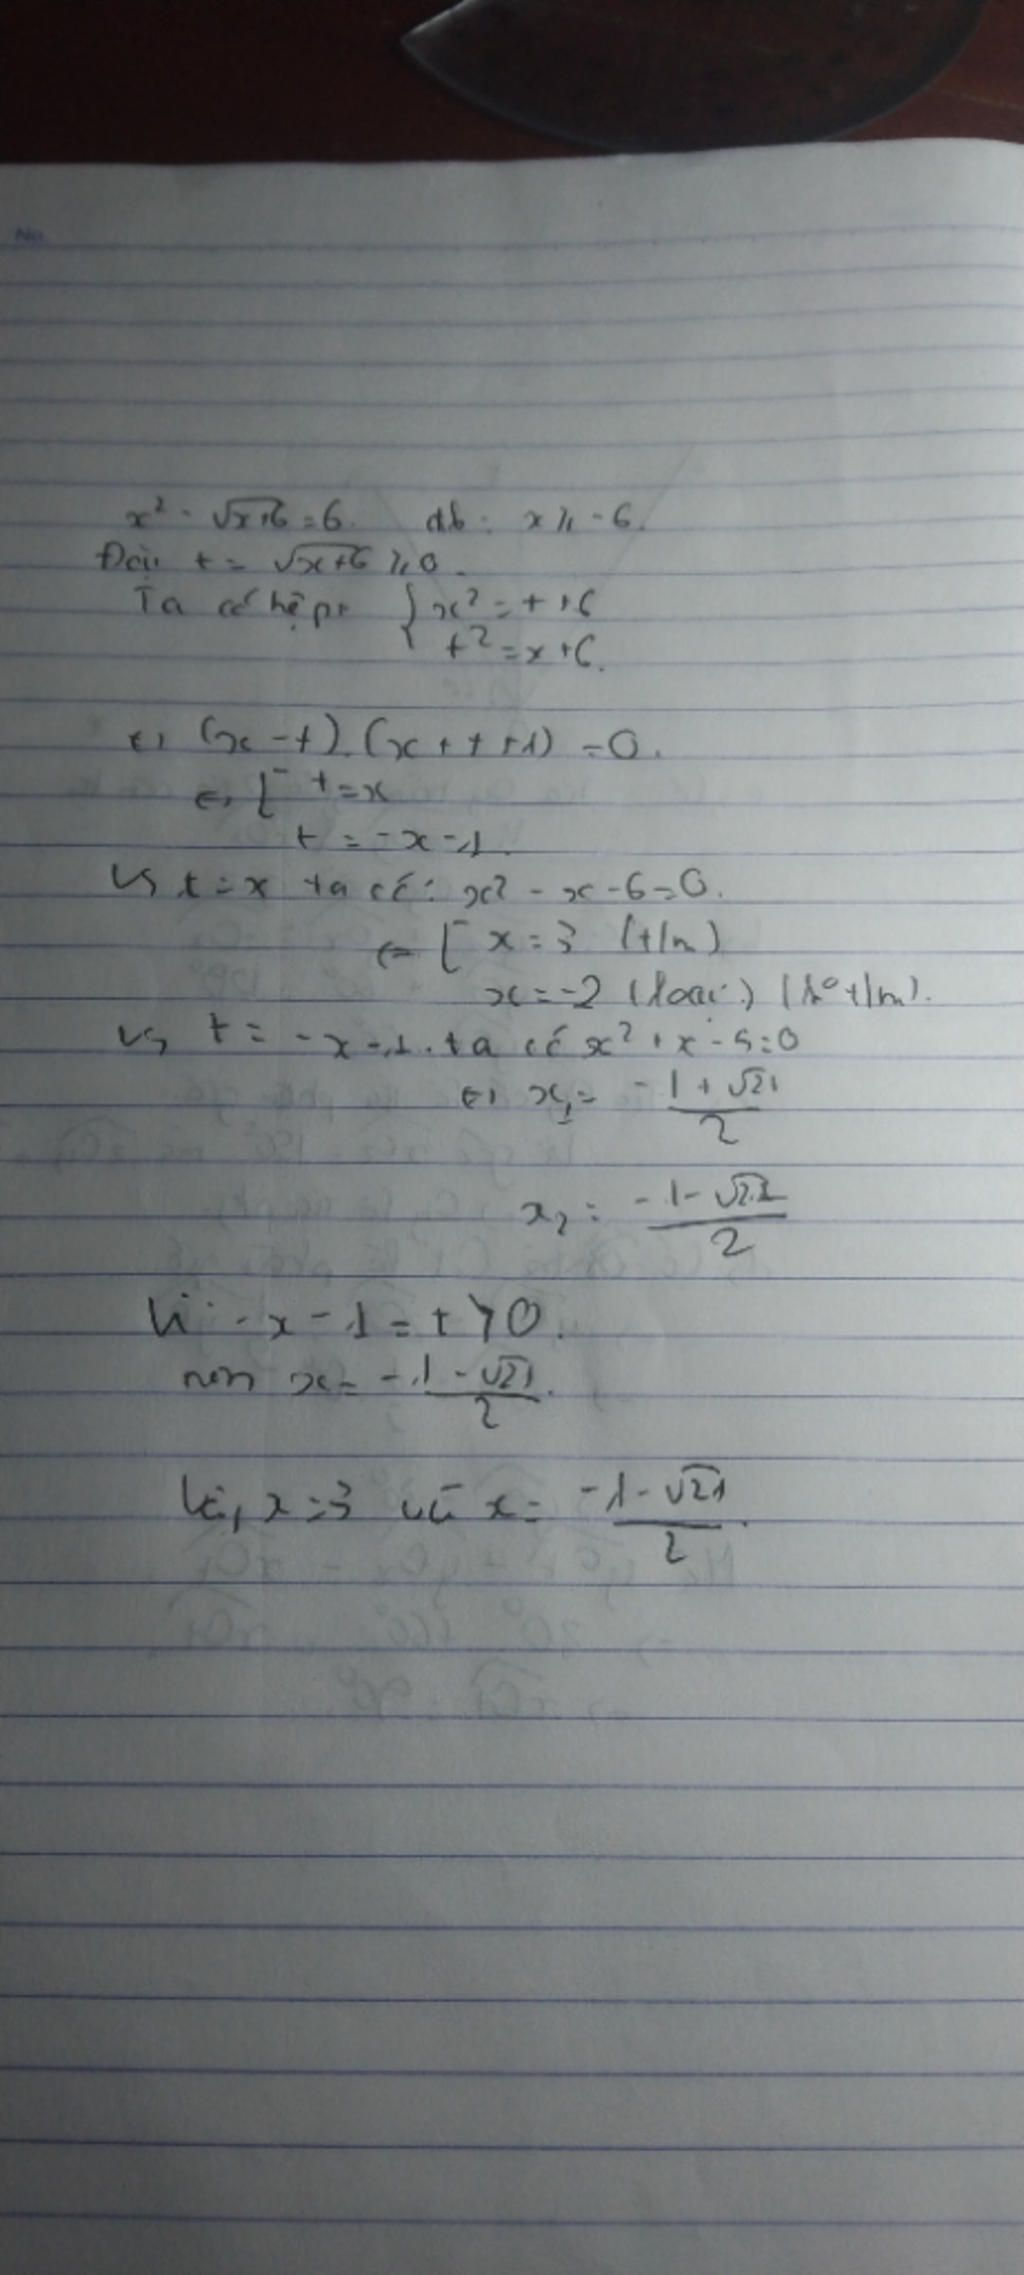 No.
x² - √x+6 = 6. đk: x ≥ -6.
Đặt t = √x+6 ≥ 0.
Ta có hệ pt { x² = t + 6
t² = x + 6.
⇔ (x - t).(x + t + 1) = 0.
⇔ [ t = x
t = -x - 1.
Vs t = x ta có: x² - x - 6 = 0.
⇔ [ x = 3 (t/m)
x = -2 (loại) (k⁰ t/m).
Vs t = -x - 1. ta có x² + x - 5 = 0
⇔ x₁ = (-1 + √21)/2
x₂ = (-1 - √21)/2
Vì -x - 1 = t > 0.
nên x = (-1 - √21)/2.
Vậy x = 3 và x = (-1 - √21)/2.